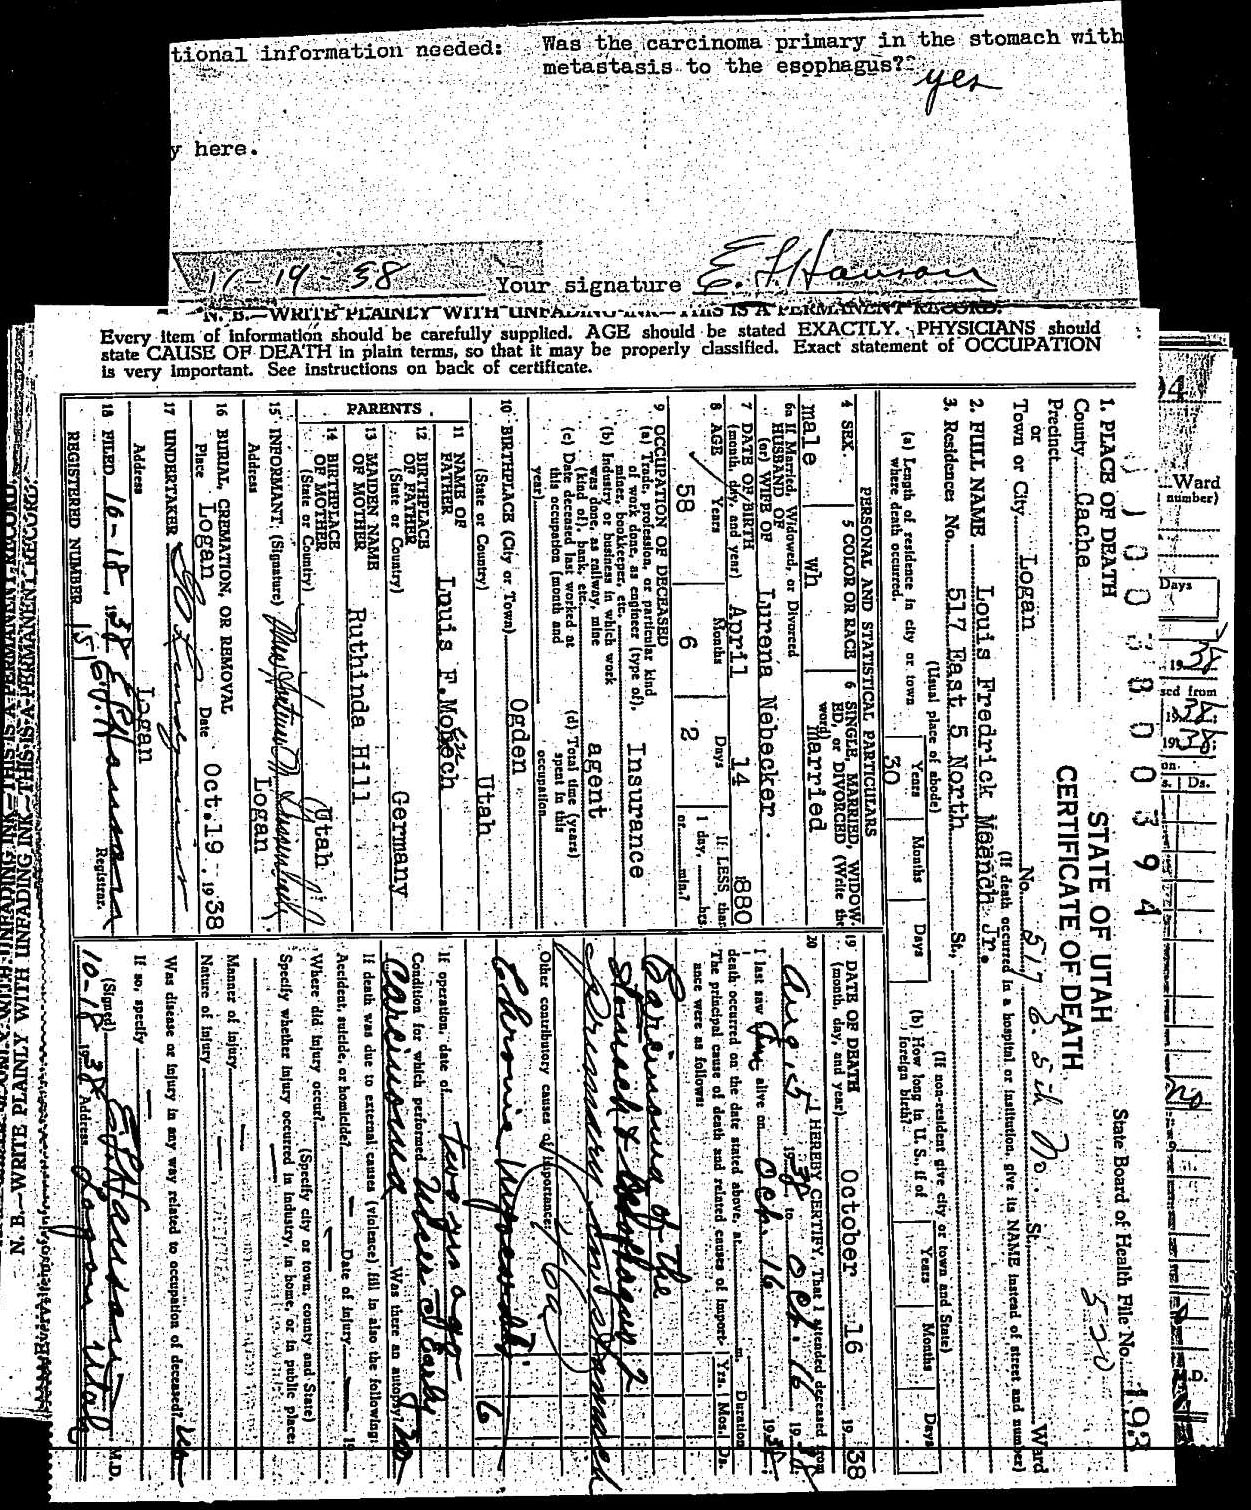 tional information needed: Was the carcinoma primary in the stomach with
metastasis to the esophagus??
yes
y here.
11-19-38 Your signature E. L. Hanson
N. B.—WRITE PLAINLY WITH UNFADING INK—THIS IS A PERMANENT RECORD.
Every item of information should be carefully supplied. AGE should be stated EXACTLY. PHYSICIANS should
state CAUSE OF DEATH in plain terms, so that it may be properly classified. Exact statement of OCCUPATION
is very important. See instructions on back of certificate.
STATE OF UTAH
CERTIFICATE OF DEATH
State Board of Health File No. 193
520
1. PLACE OF DEATH
County Cache
Precinct
or
Town or City Logan No. 517 E. 5th No. St. Ward
(If death occurred in a hospital or institution, give its NAME instead of street and number)
2. FULL NAME Louis Fredrick Moench Jr.
3. Residence: No. 517 East 5 North St.,
(Usual place of abode) (If non-resident give city or town and State)
(a) Length of residence in city or town
where death occurred. 30 Years Months Days
(b) How long in U. S., if of
foreign birth? Years Months Days
PERSONAL AND STATISTICAL PARTICULARS
4 SEX male
5 COLOR OR RACE wh
6 SINGLE, MARRIED, WIDOW-
ED, or DIVORCED (Write the
word) married
6a If Married, Widowed, or Divorced
HUSBAND OF
(or) WIFE OF Lurena Nebecker
7 DATE OF BIRTH
(month, day, and year) April 14 1880
8 AGE 58 Years 6 Months 2 Days If LESS than
1 day, hrs.
or min.?
9 OCCUPATION OF DECEASED
(a) Trade, profession, or particular kind
of work done, as engineer (type of),
miner, bookkeeper, etc. Insurance
(b) Industry or business in which work
was done, as railway, mine
(kind of), bank, etc. agent
(c) Date deceased last worked at
this occupation (month and
year)
(d) Total time (years)
spent in this
occupation
10 BIRTHPLACE (City or Town) Ogden
(State or Country) Utah
PARENTS
11 NAME OF
FATHER Louis F. Moench
12 BIRTHPLACE
OF FATHER
(State or Country) Germany
13 MAIDEN NAME
OF MOTHER Ruthinda Hill
14 BIRTHPLACE
OF MOTHER
(State or Country) Utah
15 INFORMANT, (Signature)
Address Logan
16 BURIAL, CREMATION, OR REMOVAL
Place Logan Date Oct. 19, 1938
17 UNDERTAKER
Address Logan
18 FILED 10-18, 1938 Registrar.
REGISTERED NUMBER 151
19 DATE OF DEATH
(month, day, and year) October 16 1938
20 I HEREBY CERTIFY, That I attended deceased from
Aug. 5 1938 to Oct. 16 1938
I last saw him alive on Oct. 16 1938
death occurred on the date stated above, at m.
The principal cause of death and related causes of import-
ance were as follows:
Duration
Yrs. Mos. Ds.
Carcinoma of the
Stomach & Esophagus?
Primary in Stomach
Other contributory causes of importance:
Chronic Myocardit. 6
If operation, date of Two yrs ago
Condition for which performed Ulcer & Early
Carcinoma Was there an autopsy? No
If death was due to external causes (violence) fill in also the following:
Accident, suicide, or homicide? Date of injury 19
Where did injury occur?
(Specify city or town, county and State)
Specify whether injury occurred in industry, in home, or in public place:
Manner of injury
Nature of injury
Was disease or injury in any way related to occupation of deceased? No
If so, specify
(Signed) E L Hanson M.D.
10-18 1938 Address Logan Utah
N. B.—WRITE PLAINLY WITH UNFADING INK—THIS IS A PERMANENT RECORD.